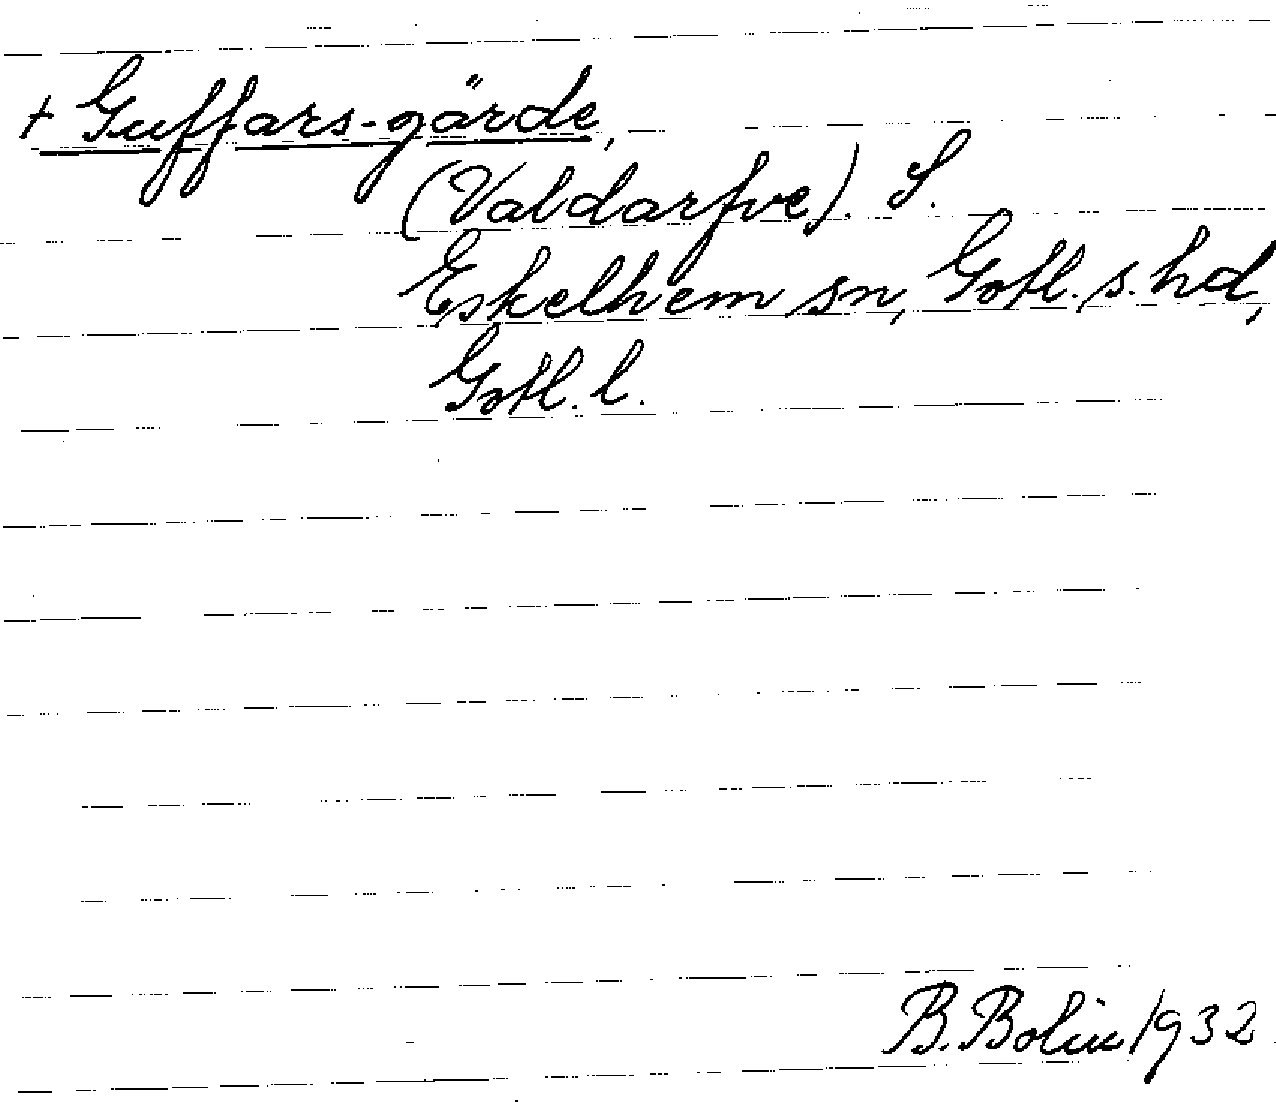 + Guffars-gärde,
(Valdarfve). S.
Eskelhem sn, Gotl. s. hd,
Gotl. l.
B. Bolin 1932